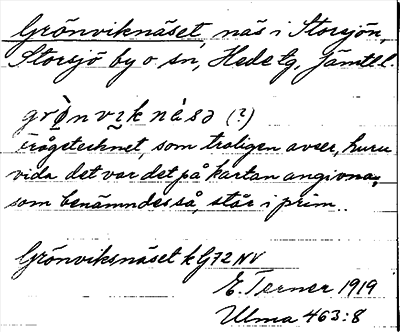 Grönviknäset, näs i Storsjön,
Storsjö by o sn, Hede tg, Jämtl.l.
grø̀nviknɛ́sə (?)
Frågetecknet, som troligen avser, huru
vida det var det på kartan angivna,
som benämndes så, står i prim..
Grönviksnäset k G72 NV
E. Terner 1919
Ulma 463:8